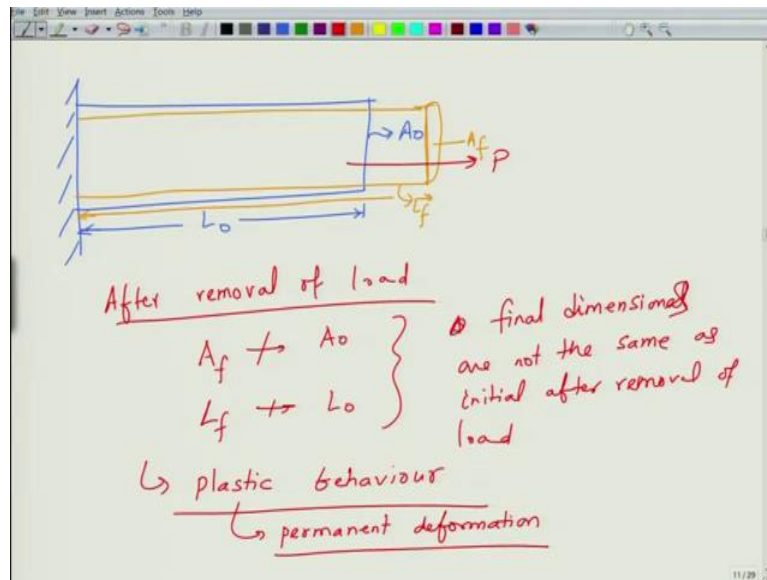 File Edit View Insert Actions Tools Help
B I
A0
Af
P
Lf
L0
After removal of load
Af ↛ A0
Lf ↛ L0
final dimensionas
are not the same as
initial after removal of
load
↳ plastic behaviour
↳ permanent deformation
11/29